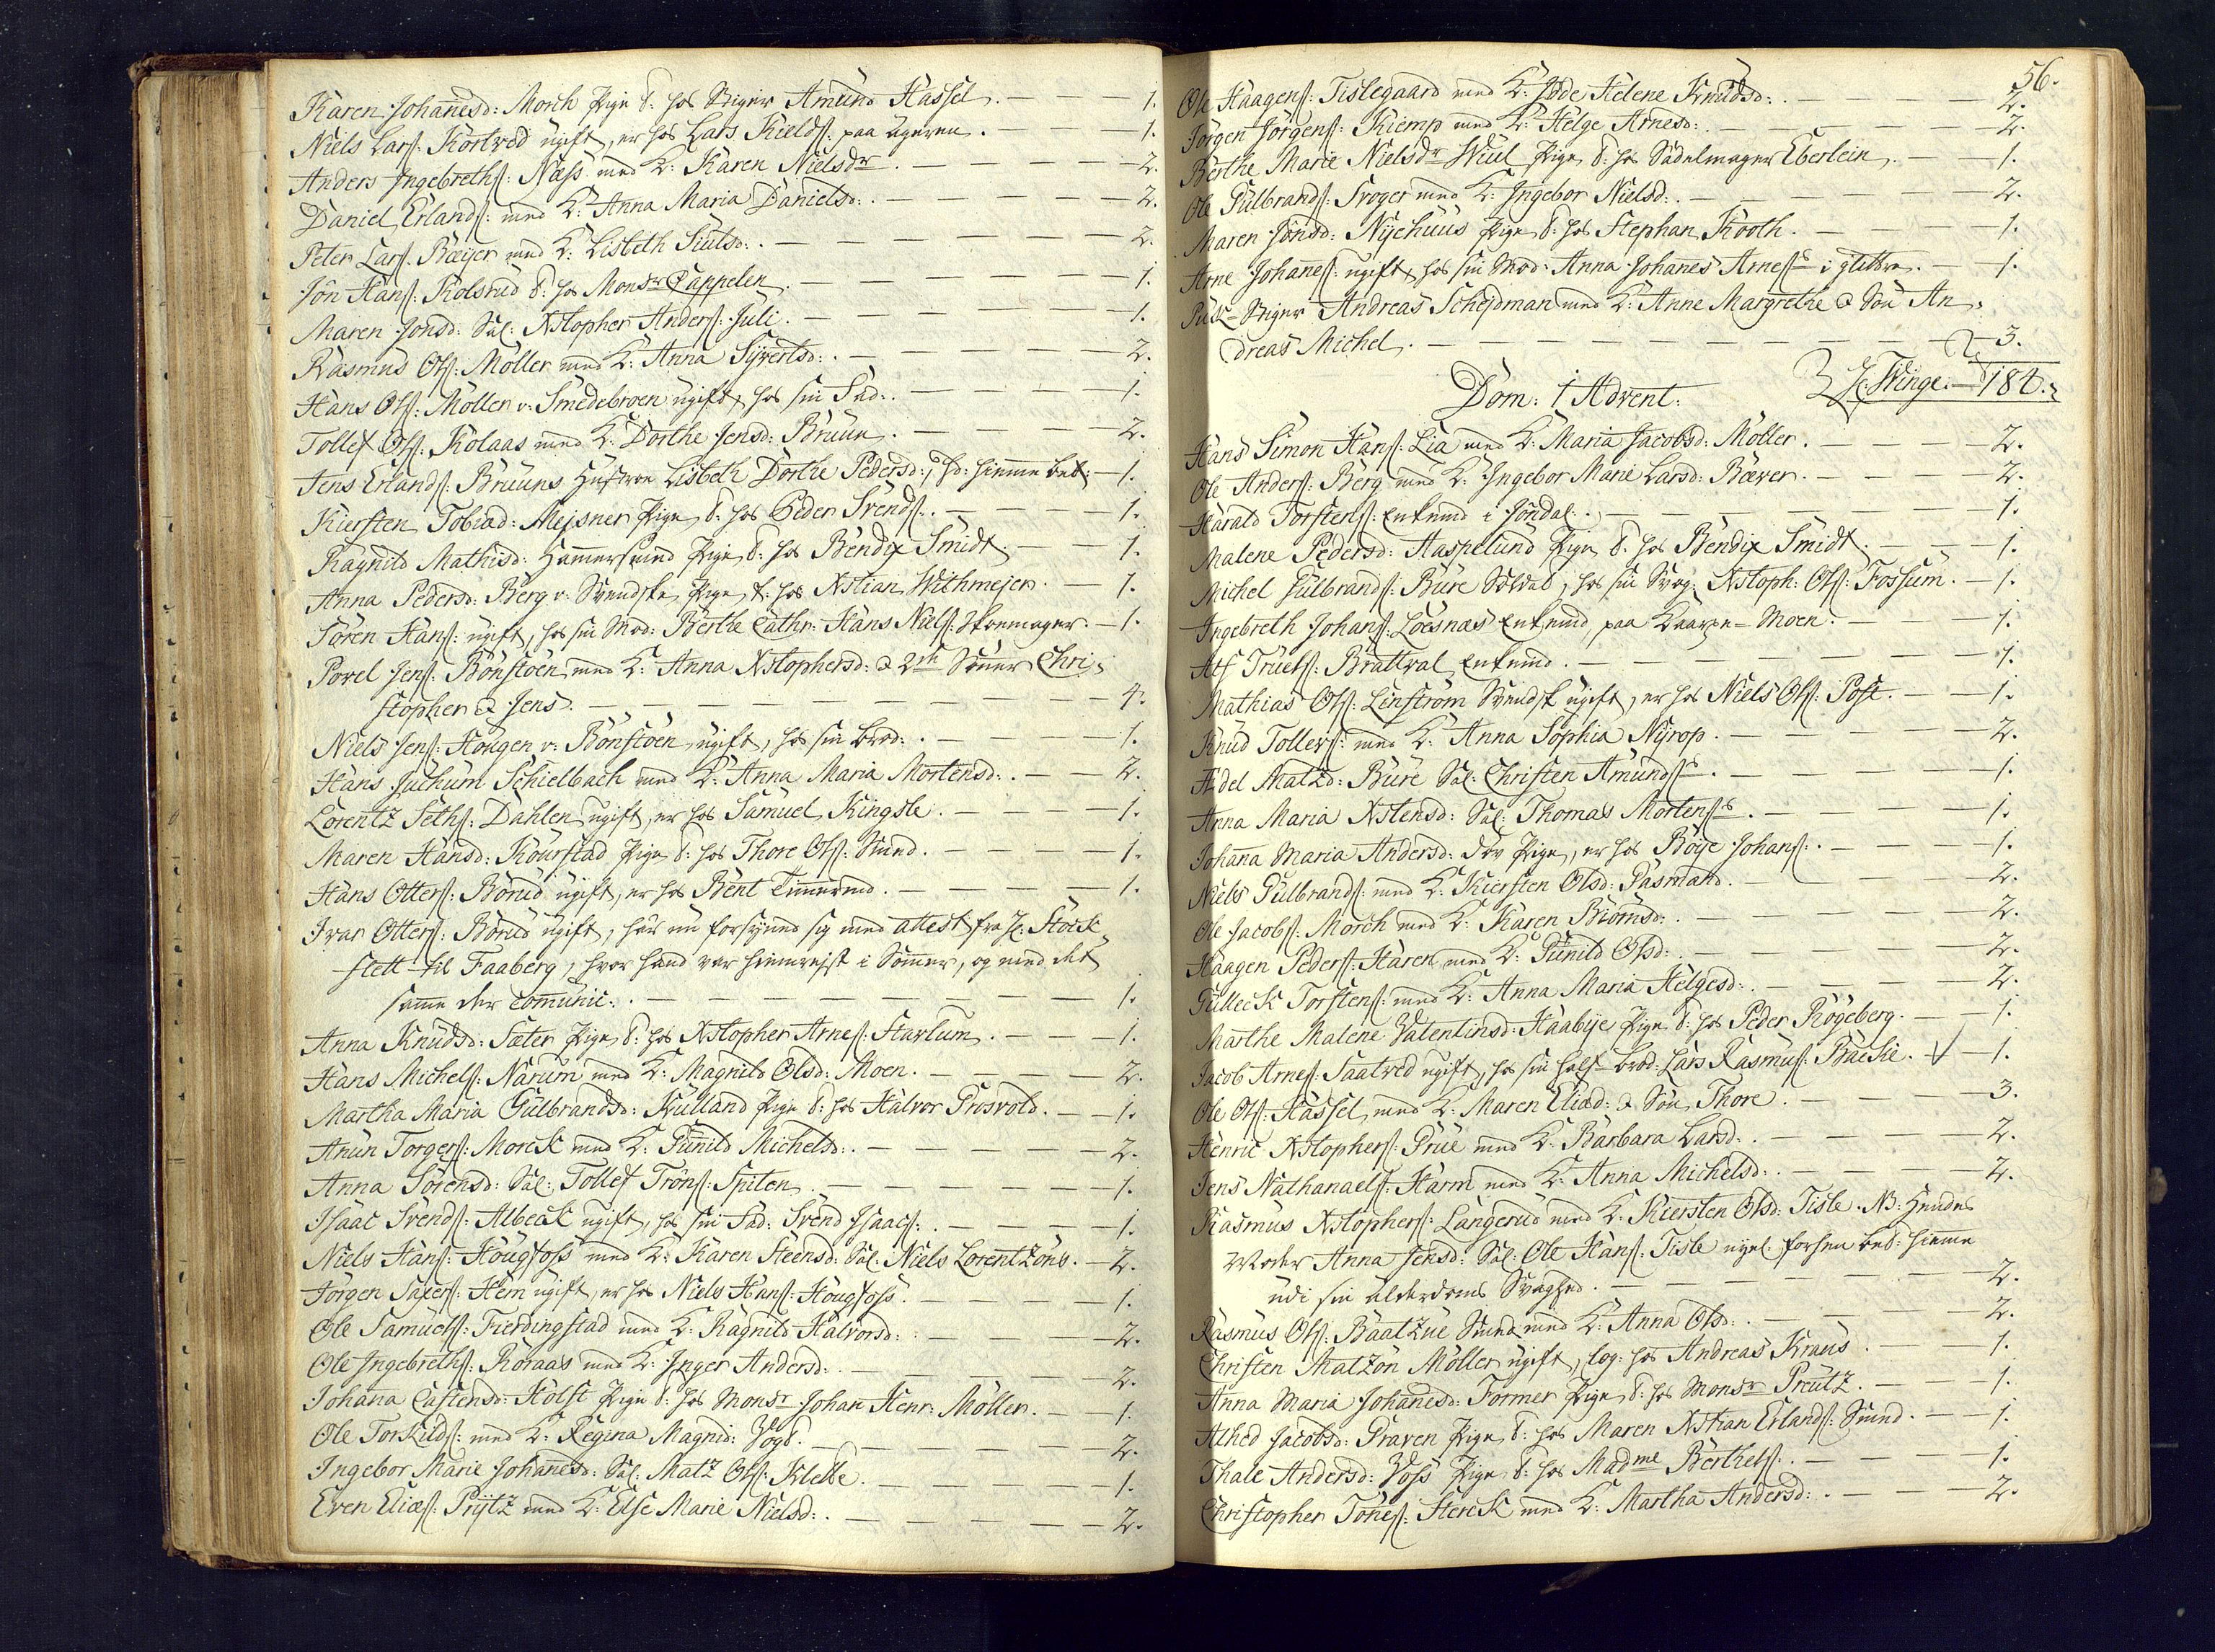 Karen Johanesd: Morch Pige t: hos Stiger Amund Hassel. — 1.
Niels Lars: Kortved ugift, er hos Lars Kields: paa Ageren. — 1.
Anders Ingebreths: Næss med K: Karen Nielsdr — 2.
Daniel Erlands: med K: Anna Maria Danielsd: — 2.
Peter Lars. Bæyer med K: Lisbeth Siulsd: — 2.
Jon Hans: Kolsrud t: hos Monsr Cappelen. — 1.
Maren Jonsd: Sal: Xstopher Anders: Juli. — 1.
Rasmus Ols: Möller med K: Anna Syvertsd: — 2.
Hans Ols: Möller v: Smedebroen ugift, hos sin Fad: — 1.
Tollef Ols: Kolaas med K: Dorthe Jensd: Bruun. — 2.
Jens Erlands: Bruuns Hustroe Lisbeth Dorthe Pedersd: hiemme bet: — 1.
Kiersten Tobiad: Mejsner Pige t: hos Peder Svends: — 1.
Ragnild Mathisd: Hammersmed Pige t: hos Bendix Smidt — 1.
Anna Pedersd: Berg v: Svendske Pige t: hos Xstian Withmejer. — 1.
Sören Hans: ugift, hos sin Mod: Berthe Cathr: Hans Niels: Skoemager. — 1.
Povel Jens: Bönstöen med K: Anna Xstophersd: & 2de Sönner Chri-
stopher & Jens. — 4.
Niels Jens: Hougen v: Bönstöen ugift, hos sin Brod: — 1.
Hans Juchum Schielbach med K: Anna Maria Mortensd: — 2.
Lorentz Seths: Dahlen ugift, er hos Samuel Kingsle. — 1.
Maren Hansd: Kourstad Pige t: hos Thore Ols: Smed. — 1.
Hans Otters: Borud ugift, er hos Bent Timmermd. — 1.
Ivar Otters: Borud ugift, har nu forsynet sig med attest fra Hr Stock-
flett til Faaberg, hvor hand var hiemreyst i Sommer, og med det
samme der comunic: — 1.
Anna Knudsd: Sæter Pige t: hos Xstopher Arnes: Hartum. — 1.
Hans Michels: Narum med K: Magnild Olsd: Moen. — 2.
Martha Maria Gulbrandsd: Kulland Pige t: hos Halvor Grosvold. — 1.
Anun Torgers: Morck med K: Gunild Michelsd: — 2.
Anna Sörensd: Sal: Tollef Tröns: Spiten. — 1.
Isaac Svends: Albeck ugift, hos sin Fad: Svend Isaacs: — 1.
Niels Hans: Hougfoss med K: Karen Steensd: Sal: Niels Lorentzöns. — 2.
Jörgen Saxers: Hem ugift, er hos Niels Hans: Hougfoss. — 1.
Ole Samuels: Fierdingstad med K: Ragnild Halvorsd: — 2.
Ole Ingebreths: Roraas med K: Inger Andersd: — 2.
Johana Castensd: Holst Pige t: hos Monsr Johan Henr: Möller. — 1.
Ole Torkilds: med K: Regina Magnid: Vogt. — 2.
Ingebor Marie Johanesd: Sal: Matz Ols: Klette. — 1.
Even Elies: Prytz med K: Else Marie Nielsd: — 2.
56.
Ole Haagens: Tislegaard med K: Helene Knudsd: — 2.
Jörgen Jörgens: Kiemp med K: Helge Arnesd: — 2.
Berthe Marie Nielsdr Wiul Pige t: hos Sadelmager Eberlein. — 1.
Ole Gulbrands: Troger med K: Ingebor Nielsd: — 2.
Maren Jonsd: Nyehuus Pige t: hos Stephan Kooth. — 1.
Arne Johanes: ugift, hos sin Mod: Anna Johanes Arness i glittre. — 1.
Puk-Stiger Andreas Schejdman med K: Anne Margrethe & Sön An-
dreas Michel. — 3.
Hr Winge — 184.
Dom: 1 Advent.
Hans Simon Hans: Lia med K: Maria Jacobsd: Möller. — 2.
Ole Anders: Berg med K: Ingebor Marie Larsd: Bæver. — 2.
Harald Torstens: Enkemd i Jondal. — 1.
Malene Pedersd: Haspelund Pige t: hos Bendix Smidt. — 1.
Michel Gulbrands: Bure Soldat, hos sin Svog: Xstoph: Ols: Fossum. — 1.
Ingebreth Johans: Loesnæs Enkemd paa Kaarpe-Moen. — 1.
Alf Truels: Brattval Enkemd. — 1.
Mathias Ols: Linström Svensk ugift, er hos Niels Ols: Post. — 1.
Knud Tollefs: med K: Anna Sophia Nyrop. — 2.
Ædel Matzd: Bure Sal: Christen Amunds: — 1.
Anna Maria Xstensd: Sal: Thomas Mortens: — 1.
Johana Maria Andersd: döv Pige, er hos Böye Johans: — 1.
Niels Gulbrands: med K: Kiersten Olsd: Pasmand. — 2.
Ole Jacobs: Morch med K: Karen Biörnsd: — 2.
Haagen Peders: Haren med K: Gunild Olsd: — 2.
Gulleck Torstens: med K: Anna Maria Helgesd: — 2.
Marthe Malene Valentinsd: Haabye Pige t: hos Peder Rögeberg. — 1.
Jacob Arnes: Saatved ugift, hos sin half-Brod: Lars Rasmus: Backie. — 1.
Ole Ols: Hassel, med K: Maren Eliæd: & Sön Thore. — 3.
Henric Xstophers: Grue med K: Barbara Larsd: — 2.
Jens Nathanaels: Harm med K: Anna Michelsd: — 2.
Rasmus Xstophers: Langerud med K: Kiersten Olsd: Tisle. NB: Hendes
Moder Anna Jensd: Sal: Ole Hans: Tisle bet: hiemme
udi sin alderdoms Svaghed. — 2.
Rasmus Ols: Baatzue Smed med K: Anna Olsd: — 2.
Christen Matzön Möller ugift, log: hos Andreas Kraus. — 1.
Anna Maria Johanesd: Former Pige t: hos Monsr Preutz. — 1.
Alhed Jacobsd: Graven Pige t: hos Maren Xstian Erlands: Smed. — 1.
Thale Andersd: Voss Pige t: hos Madme Berthels: — 1.
Christopher Tönes: Sterck med K: Martha Andersd: — 2.